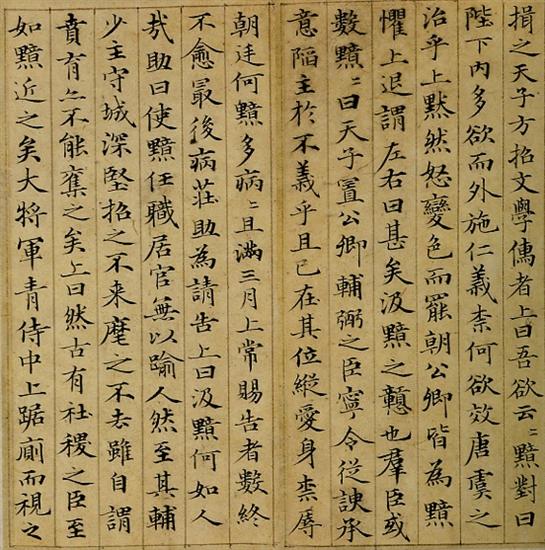 揖之天子方招文學儒者上曰吾欲云〻黯對曰
陛下內多欲而外施仁義柰何欲效唐虞之
治乎上黙然怒變色而罷朝公卿皆為黯
懼上退謂左右曰甚矣汲黯之戇也羣臣或
數黯〻曰天子置公卿輔弼之臣寧令従諛承
意陷主於不義乎且已在其位縱愛身柰辱
朝廷何黯多病〻且滿三月上常賜告者數終
不愈最後病莊助為請告上曰汲黯何如人
㦲助曰使黯任職居官無以踰人然至其輔
少主守城深堅招之不来麾之不去雖自謂
賁育亦不能奪之矣上曰然古有社稷之臣至
如黯近之矣大將軍青侍中上踞廁而視之